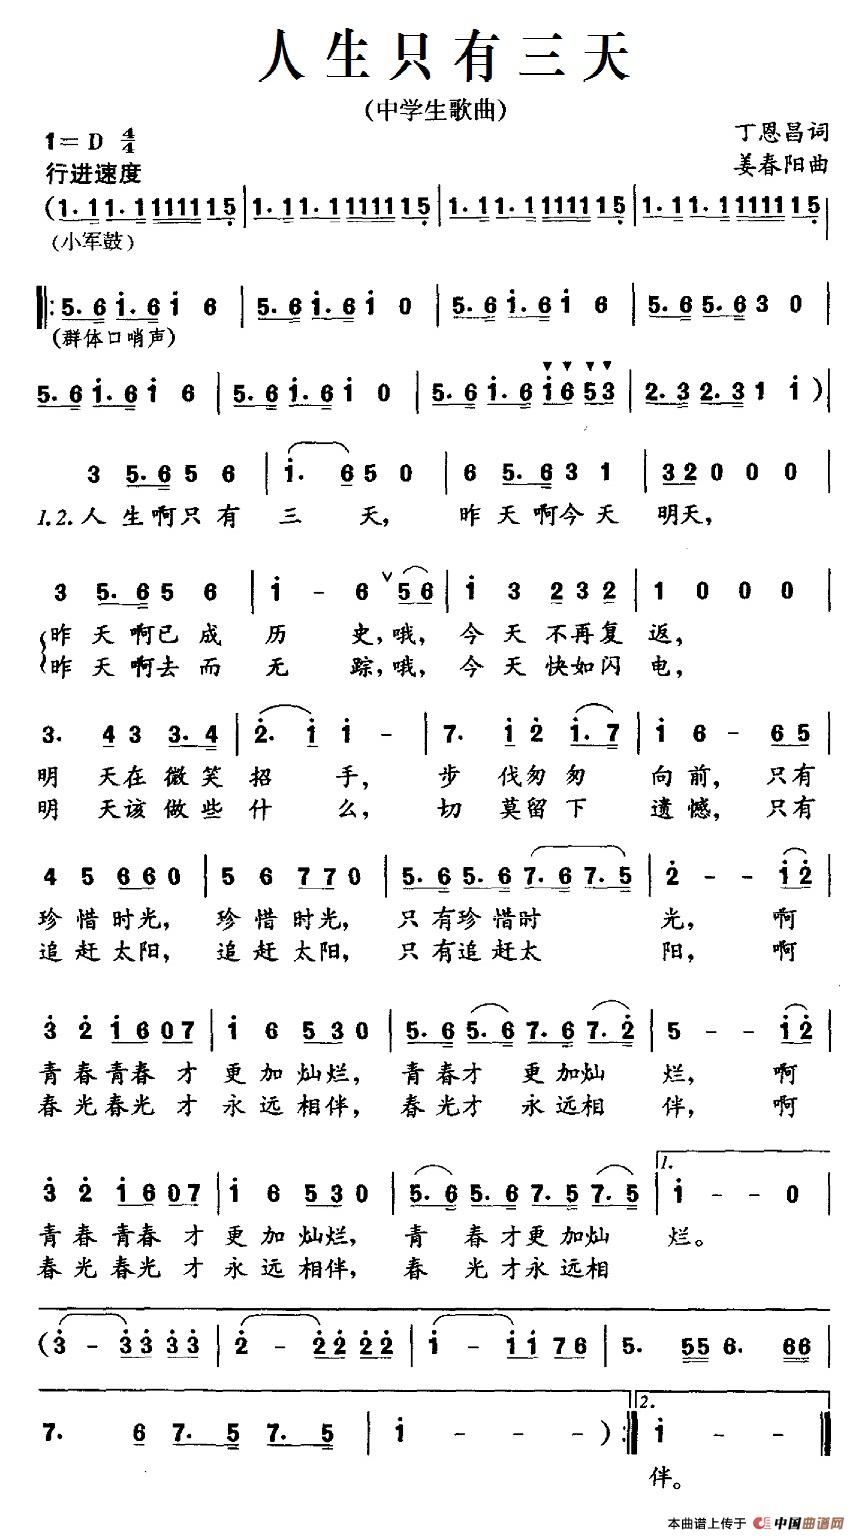 人生只有三天
(中学生歌曲)
1=D 4/4
丁恩昌词
行进速度
姜春阳曲
(1.11.11111115|1.11.11111115|1.11.11111115|1.11.11111115|
(小军鼓)
5.61.61 6|5.61.61 0|5.61.61 6|5.65.63 0|
(群体口哨声)
5.61.61 6|5.61.61 0|5.61.61653|2.32.31 1)|
3 5.65 6|1. 650|6 5.631|32000|
1.2.人生啊只有三天,昨天啊今天明天,
3 5.65 6|1 - 6 56|1 3 232|1 0 0 0|
昨天啊已成历史,哦,今天不再复返,
昨天啊去而无踪,哦,今天快如闪电,
3. 43 3.4|2. 11 -|7. 12 1.7|1 6 - 65|
明天在微笑招手,步伐匆匆向前,只有
明天该做些什么,切莫留下遗憾,只有
4 5 660|5 6 770|5.65.67.67.5|2 - - 12|
珍惜时光,珍惜时光,只有珍惜时光,啊
追赶太阳,追赶太阳,只有追赶太阳,啊
3 2 1607|1 6 530|5.65.67.67.2|5 - - 12|
青春青春才更加灿烂,青春才更加灿烂,啊
春光春光才永远相伴,春光才永远相伴,啊
3 2 1607|1 6 530|5.65.67.57.5|1.1 - - 0|
青春青春才更加灿烂,青春才更加灿烂。
春光春光才永远相伴,春光才永远相
(3 - 3333|2 - 2222|1 - 1176|5. 556. 66|
7. 67.57.5|1 - - -):|2.1 - - -|
伴。
本曲谱上传于 中国曲谱网